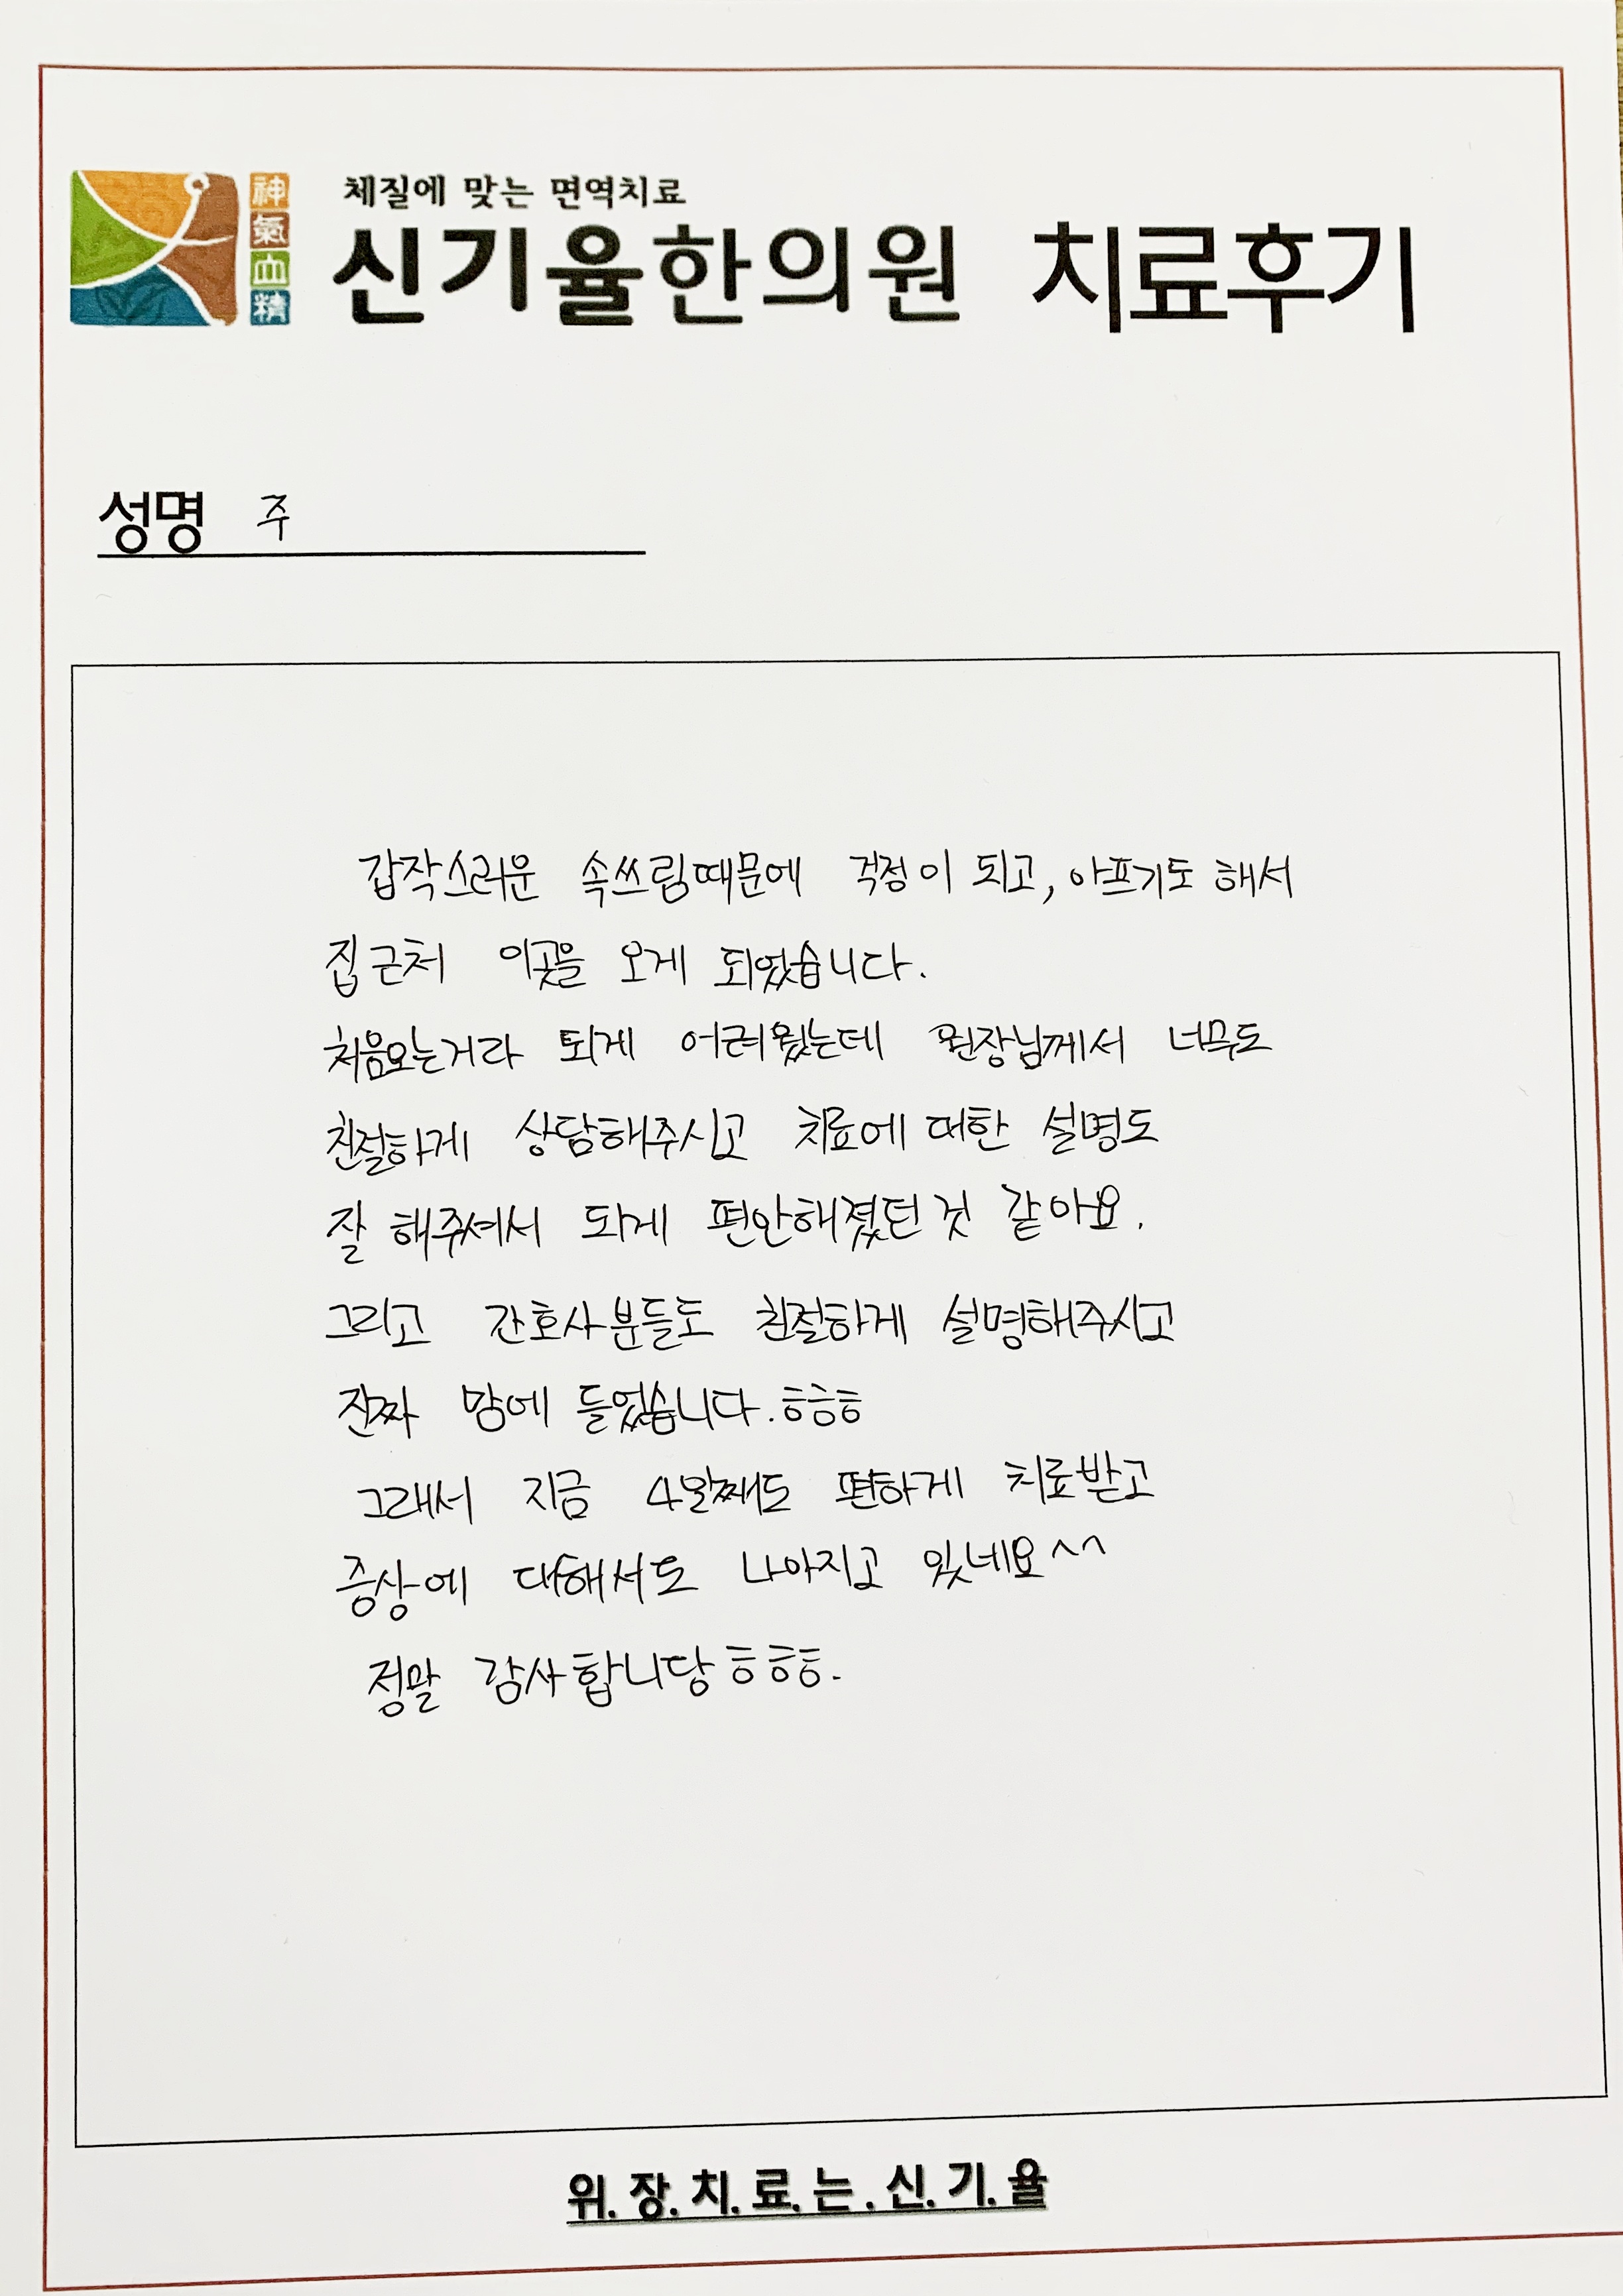 체질에 맞는 면역치료
神氣血精
신기율한의원 치료후기
성명 주
갑작스러운 속쓰림때문에 걱정이 되고, 아프기도 해서
집근처 이곳을 오게 되었습니다.
처음오는거라 되게 어려웠는데 원장님께서 너무도
친절하게 상담해주시고 치료에 대한 설명도
잘 해주셔서 되게 편안해졌던 것 같아요.
그리고 간호사분들도 친절하게 설명해주시고
진짜 맘에 들었습니다.ㅎㅎㅎ
그래서 지금 4일째도 편하게 치료받고
증상에 대해서도 나아지고 있네요^^
정말 감사합니당ㅎㅎㅎ.
위.장.치.료.는.신.기.율